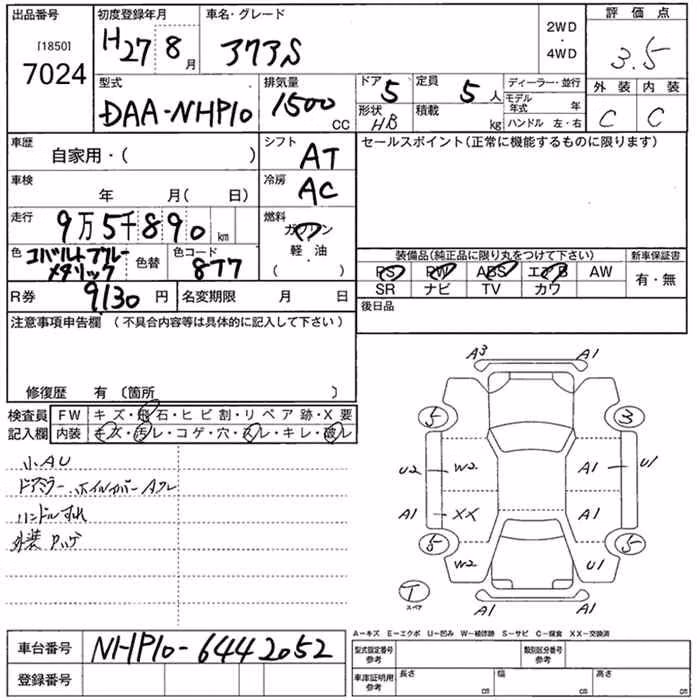 出品番号 初度登録年月 車名・グレード 2WD・4WD 評価点
[1850]
7024
H27 8月 373S 3.5
型式 DAA-NHP10 排気量 1500 CC ドア 5 定員 5 人 ディーラー・並行 外装 内装
形状 HB 積載 kg モデル年式 年 C C
ハンドル 左・右
車歴 自家用・( ) シフト AT セールスポイント(正常に機能するものに限ります)
車検 年 月( 日) 冷房 AC
走行 9万5千890 km 燃料 ガソリン
軽・油
( )
色 コバルトブルーメタリック 色替 色コード 8T7
装備品(純正品に限り丸をつけて下さい) 新車保証書
PS PW ABS エアB AW 有・無
SR ナビ TV カワ
R券 9130 円 名変期限 月 日 後日品
注意事項申告欄 (不具合内容等は具体的に記入して下さい)
修復歴 有 〔箇所 〕
検査員記入欄 FW キズ・飛石・ヒビ割・リペア跡・X要
内装 キズ・汚レ・コゲ・穴・スレ・キレ・破レ
小AU
ドアミラー ホイルカバー Aクレ
ハンドルすれ
外装 Pハゲ
A3 A1
5 3
U2 W2 A1 U1
A1 XX A1
5 5
W2 U1
T スペア
A1 A1
A−キズ E−エクボ U−凹み W−補修跡 S−サビ C−腐食 XX−交換済
車台番号 NHP10-6442052 型式指定番号参考 類別区分番号参考
登録番号 車庫証明用参考 長さ cm 幅 cm 高さ cm